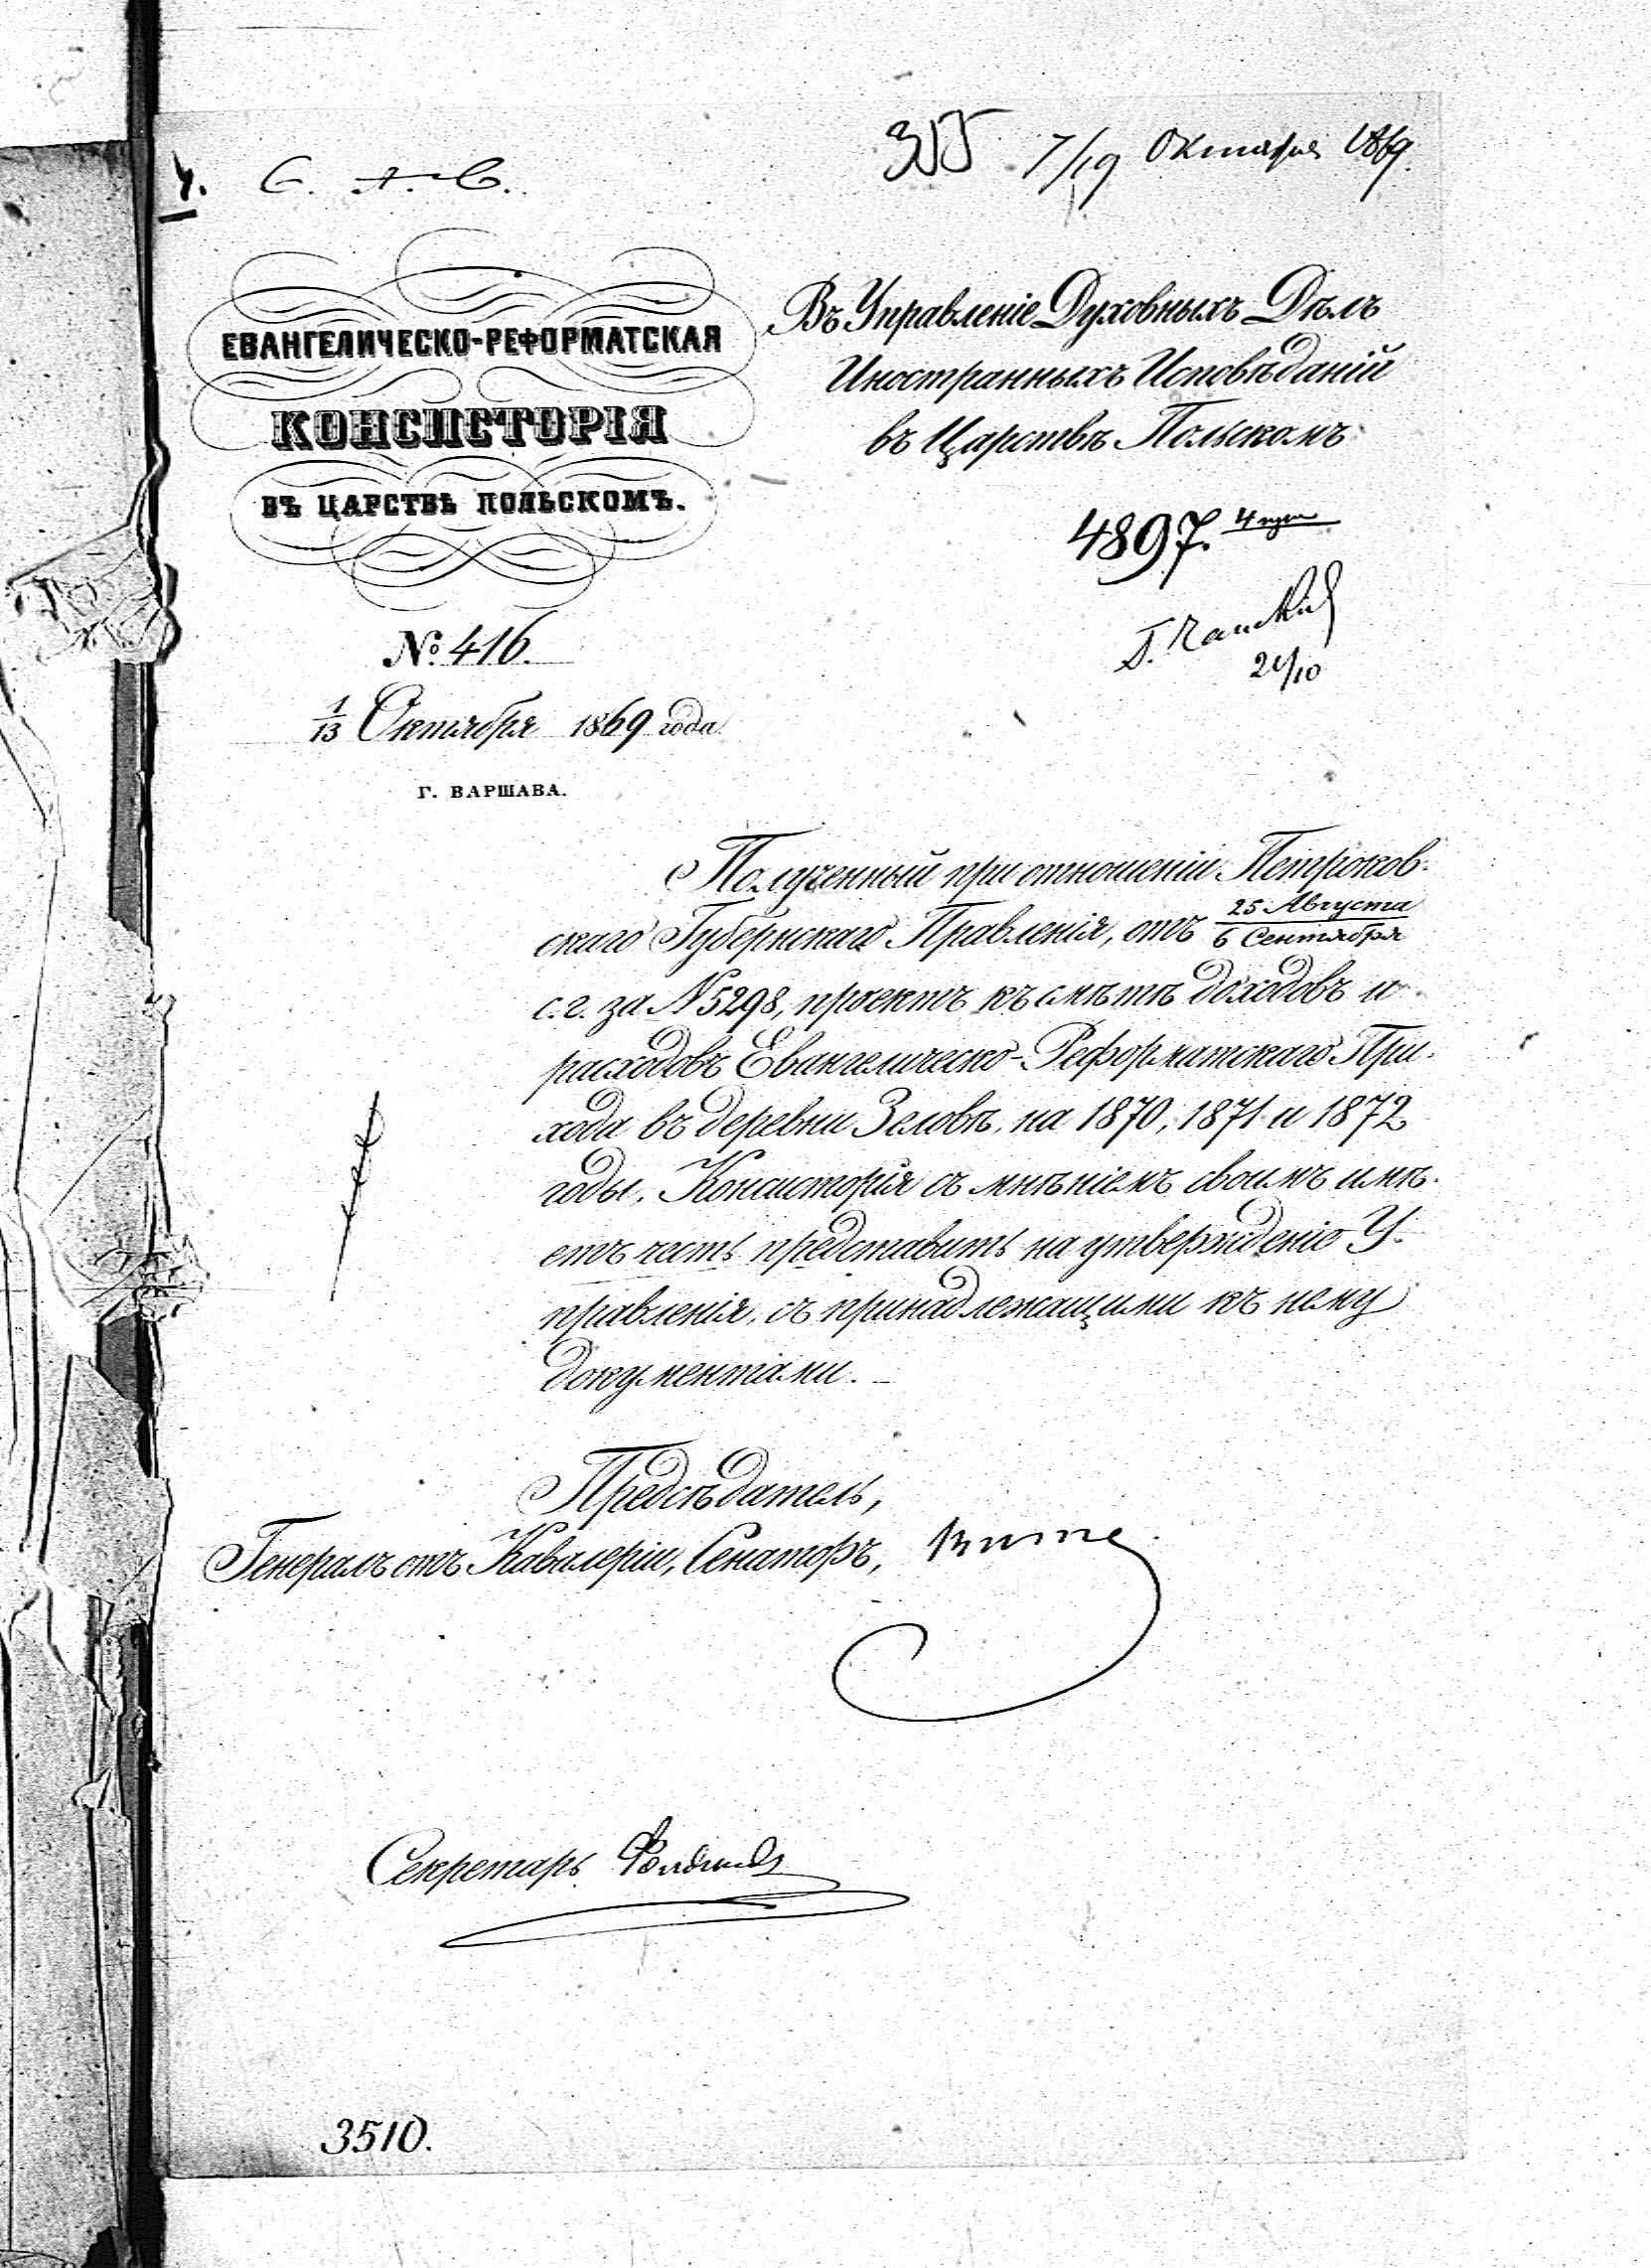 355 7/19 Октября 1869.
4. С. А. С.
ЕВАНГЕЛИЧЕСКО-РЕФОРМАТСКАЯ
КОНСИСТОРІЯ
ВЪ ЦАРСТВѢ ПОЛЬСКОМЪ.
№ 416.
1/13 Октября 1869 года
Г. ВАРШАВА.
Въ Управленіе Духовныхъ Дѣлъ
Иностранныхъ Исповѣданій
въ Царствѣ Польскомъ
4897.
21/10
Полученный при отношеніи Петроков-
скаго Губернскаго Правленія, отъ 25 Августа/6 Сентября
с. г. за № 5298, проектъ къ смѣтѣ доходовъ и
расходовъ Евангелическо-Реформатскаго При-
хода въ деревни Зеловѣ, на 1870, 1871 и 1872
годы, Консисторія съ мнѣніемъ своимъ имѣ-
етъ честь представить на утвержденіе У-
правленія, съ принадлежащими къ нему
документами.
Предсѣдатель,
Генералъ отъ Кавалеріи, Сенаторъ, Витте
Секретарь
3510.